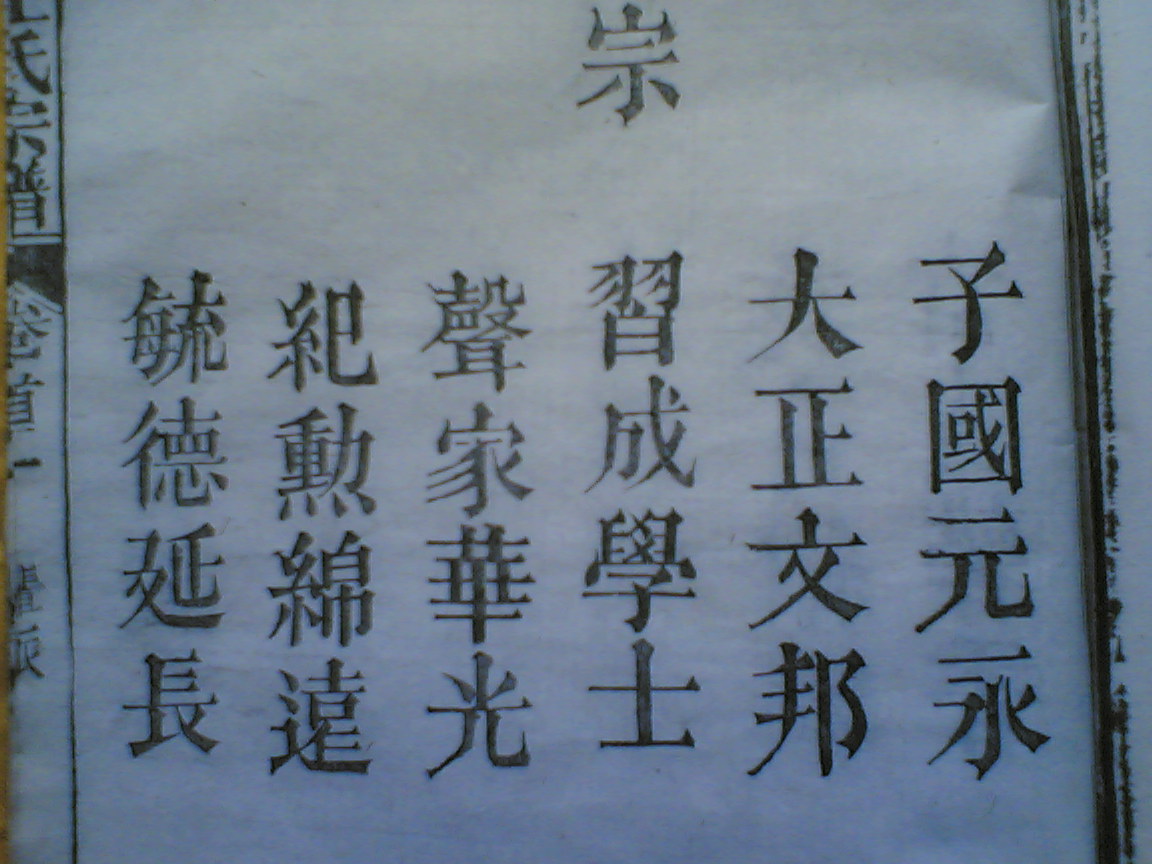 宗
子國元永
大正文邦
習成學士
聲家華光
紀勳綿遠
毓德延長
氏宗譜
卷首
一